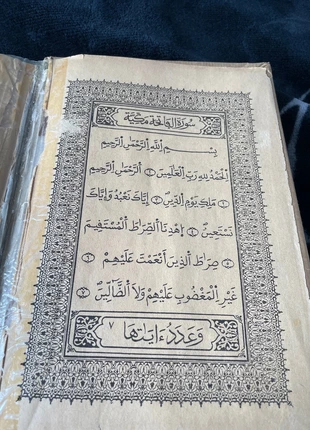 سُورَةُ الفَاتِحَةِ مَكِيَّة
بِسْمِ اللَّهِ الرَّحْمَٰنِ الرَّحِيمِ
الْحَمْدُ لِلَّهِ رَبِّ الْعَالَمِينَ ۝ الرَّحْمَٰنِ الرَّحِيمِ
۝ مَالِكِ يَوْمِ الدِّينِ ۝ إِيَّاكَ نَعْبُدُ وَإِيَّاكَ
نَسْتَعِينُ ۝ اهْدِنَا الصِّرَاطَ الْمُسْتَقِيمَ
۝ صِرَاطَ الَّذِينَ أَنْعَمْتَ عَلَيْهِمْ ۝
غَيْرِ الْمَغْضُوبِ عَلَيْهِمْ وَلَا الضَّالِّينَ ۝
وَعَدَدُ ءَايَتِهَا ٧